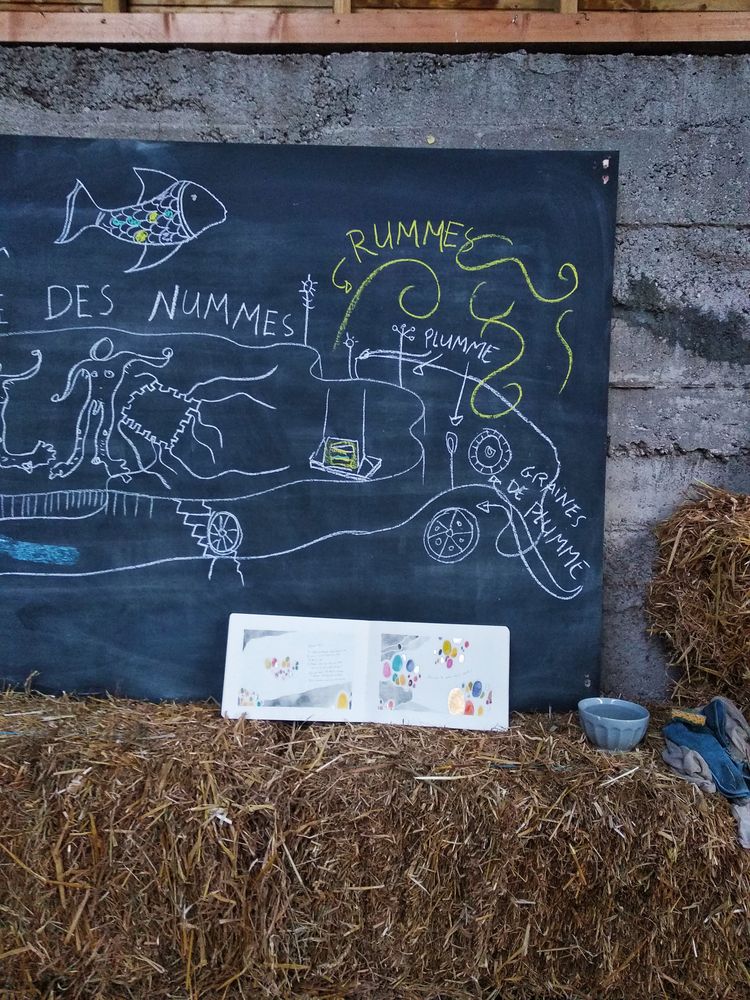 RUMMES
DES NUMMES
PLUMME
GRAINES
DE PLUMME